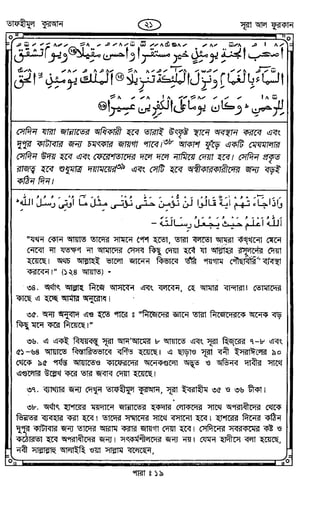 তাফহীমুল কুরআন
২১
সূরা আল ফুরকান
أَصْحٰبُ الْجَنَّةِ يَوْمَئِذٍ خَيْرٌ مُّسْتَقَرًّا وَّأَحْسَنُ مَقِيْلًا ﴿٢٤﴾ وَيَوْمَ تَشَقَّقُ
السَّمَاءُ بِالْغَمَامِ وَنُزِّلَ الْمَلٰئِكَةُ تَنْزِيْلًا ﴿٢٥﴾ اَلْمُلْكُ يَوْمَئِذِ ِۨالْحَقُّ
لِلرَّحْمٰنِ ؕ وَكَانَ يَوْمًا عَلَى الْكٰفِرِيْنَ عَسِيْرًا ﴿٢٦﴾
সেদিন যারা জান্নাতের অধিকারী হবে তারাই উৎকৃষ্ট স্থানে অবস্থান করবে এবং
দুপুর কাটাবার জন্য চমৎকার জায়গা পাবে।৩৮ আকাশ ফুঁড়ে একটি মেঘমালার
সেদিন উদয় হবে এবং ফেরেশতাদের দলে দলে নামিয়ে দেয়া হবে। সেদিন প্রকৃত
রাজত্ব হবে শুধুমাত্র দয়াময়ের৩৯ এবং সেটি হবে অস্বীকারকারীদের জন্য বড়ই
কঠিন দিন।
وَإِذَا جَاءَتْهُمْ اٰيَةٌ قَالُوْا لَنْ نُّؤْمِنَ حَتّٰى نُؤْتٰى مِثْلَ مَا اُوْتِىَ رُسُلُ اللّٰهِ ؕ
اَللّٰهُ اَعْلَمُ حَيْثُ يَجْعَلُ رِسَالَتَهٗ -
"যখন কোন আয়াত তাদের সামনে পেশ হতো, তারা বলতো আমরা কখ্খনো মেনে
নেবো না যতক্ষণ না আমাদের সেসব কিছু দেয়া হবে যা আল্লাহর রসূলদের দেয়া
হয়েছে। অথচ আল্লাহই ভালো জানেন কিভাবে তাঁর পয়গাম পৌছাবার ব্যবস্থা
করবেন।" (১২৪ আয়াত) -
৩৪. অর্থাৎ আল্লাহ নিজে আসবেন এবং বলবেন, হে আমার বান্দারা। তোমাদের
কাছে এ হচ্ছে আমার অনুরোধ।
৩৫. অন্য অনুবাদ এও হতে পারে ঃ "নিজেদের জ্ঞানে তারা নিজেদেরকে অনেক বড়
কিছু মনে করে নিয়েছে।"
৩৬. এ একই বিষয়বস্তু সূরা আন'আমের ৮ আয়াতে এবং সূরা হিজরের ৭-৮ এবং
৫১-৬৪ আয়াতে বিস্তারিতভাবে বর্ণিত হয়েছে। এ ছাড়াও সূরা বনী ইসরাঈলের ৯০
থেকে ৯৫ পর্যন্ত আয়াতেও কাফেরদের অনেকগুলো অদ্ভুত ও অভিনব দাবীর সাথে
এগুলোর উল্লেখ করে তার জবাব দেয়া হয়েছে।
৩৭. ব্যাখ্যার জন্য দেখুন তাফহীমুল কুরআন, সূরা ইবরাহীম ৩৫ ও ৩৬ টীকা।
৩৮. অর্থাৎ হাশরের ময়দানে জান্নাতের হকদার লোকদের সাথে অপরাধীদের থেকে
ভিন্নতর ব্যবহার করা হবে। তাদের সম্মানের সাথে বসানো হবে। হাশরের দিনের কঠিন
দুপুর কাটাবার জন্য তাদের আরাম করার জায়গা দেয়া হবে। সেদিনের সবরকমের কষ্ট ও
কঠোরতা হবে অপরাধীদের জন্য। সৎকর্মশীলদের জন্য নয়। যেমন হাদীসে বলা হয়েছে,
নবী সাল্লাল্লাহু আলাইহি ওয়া সাল্লাম বলেছেন,
পারা ঃ ১৯